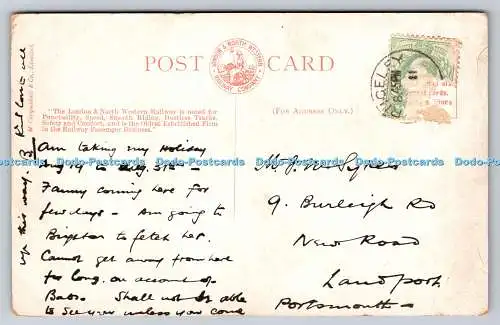 POST CARD
LONDON & NORTH WESTERN RAILWAY COMPANY
"The London & North Western Railway is noted for
Punctuality, Speed, Smooth Riding, Dustless Tracks,
Safety and Comfort, and is the Oldest Established Firm
in the Railway Passenger Business.
(For Address Only.)
McCorquodale & Co., Limited.
Am taking my Holiday
Aug 19 to Aug. 31st -
Fanny coming here for
few days - Am going to
Brighton to fetch her.
Cannot get away from here
for long, on account of
Babs. Shall not be able
to see you unless you come
up this way.
love all
M. J. W. Sykes
9. Burleigh Rd
New Road
Landport
Portsmouth -
Dodo-Postcards Dodo-Postcards Dodo-Postcards